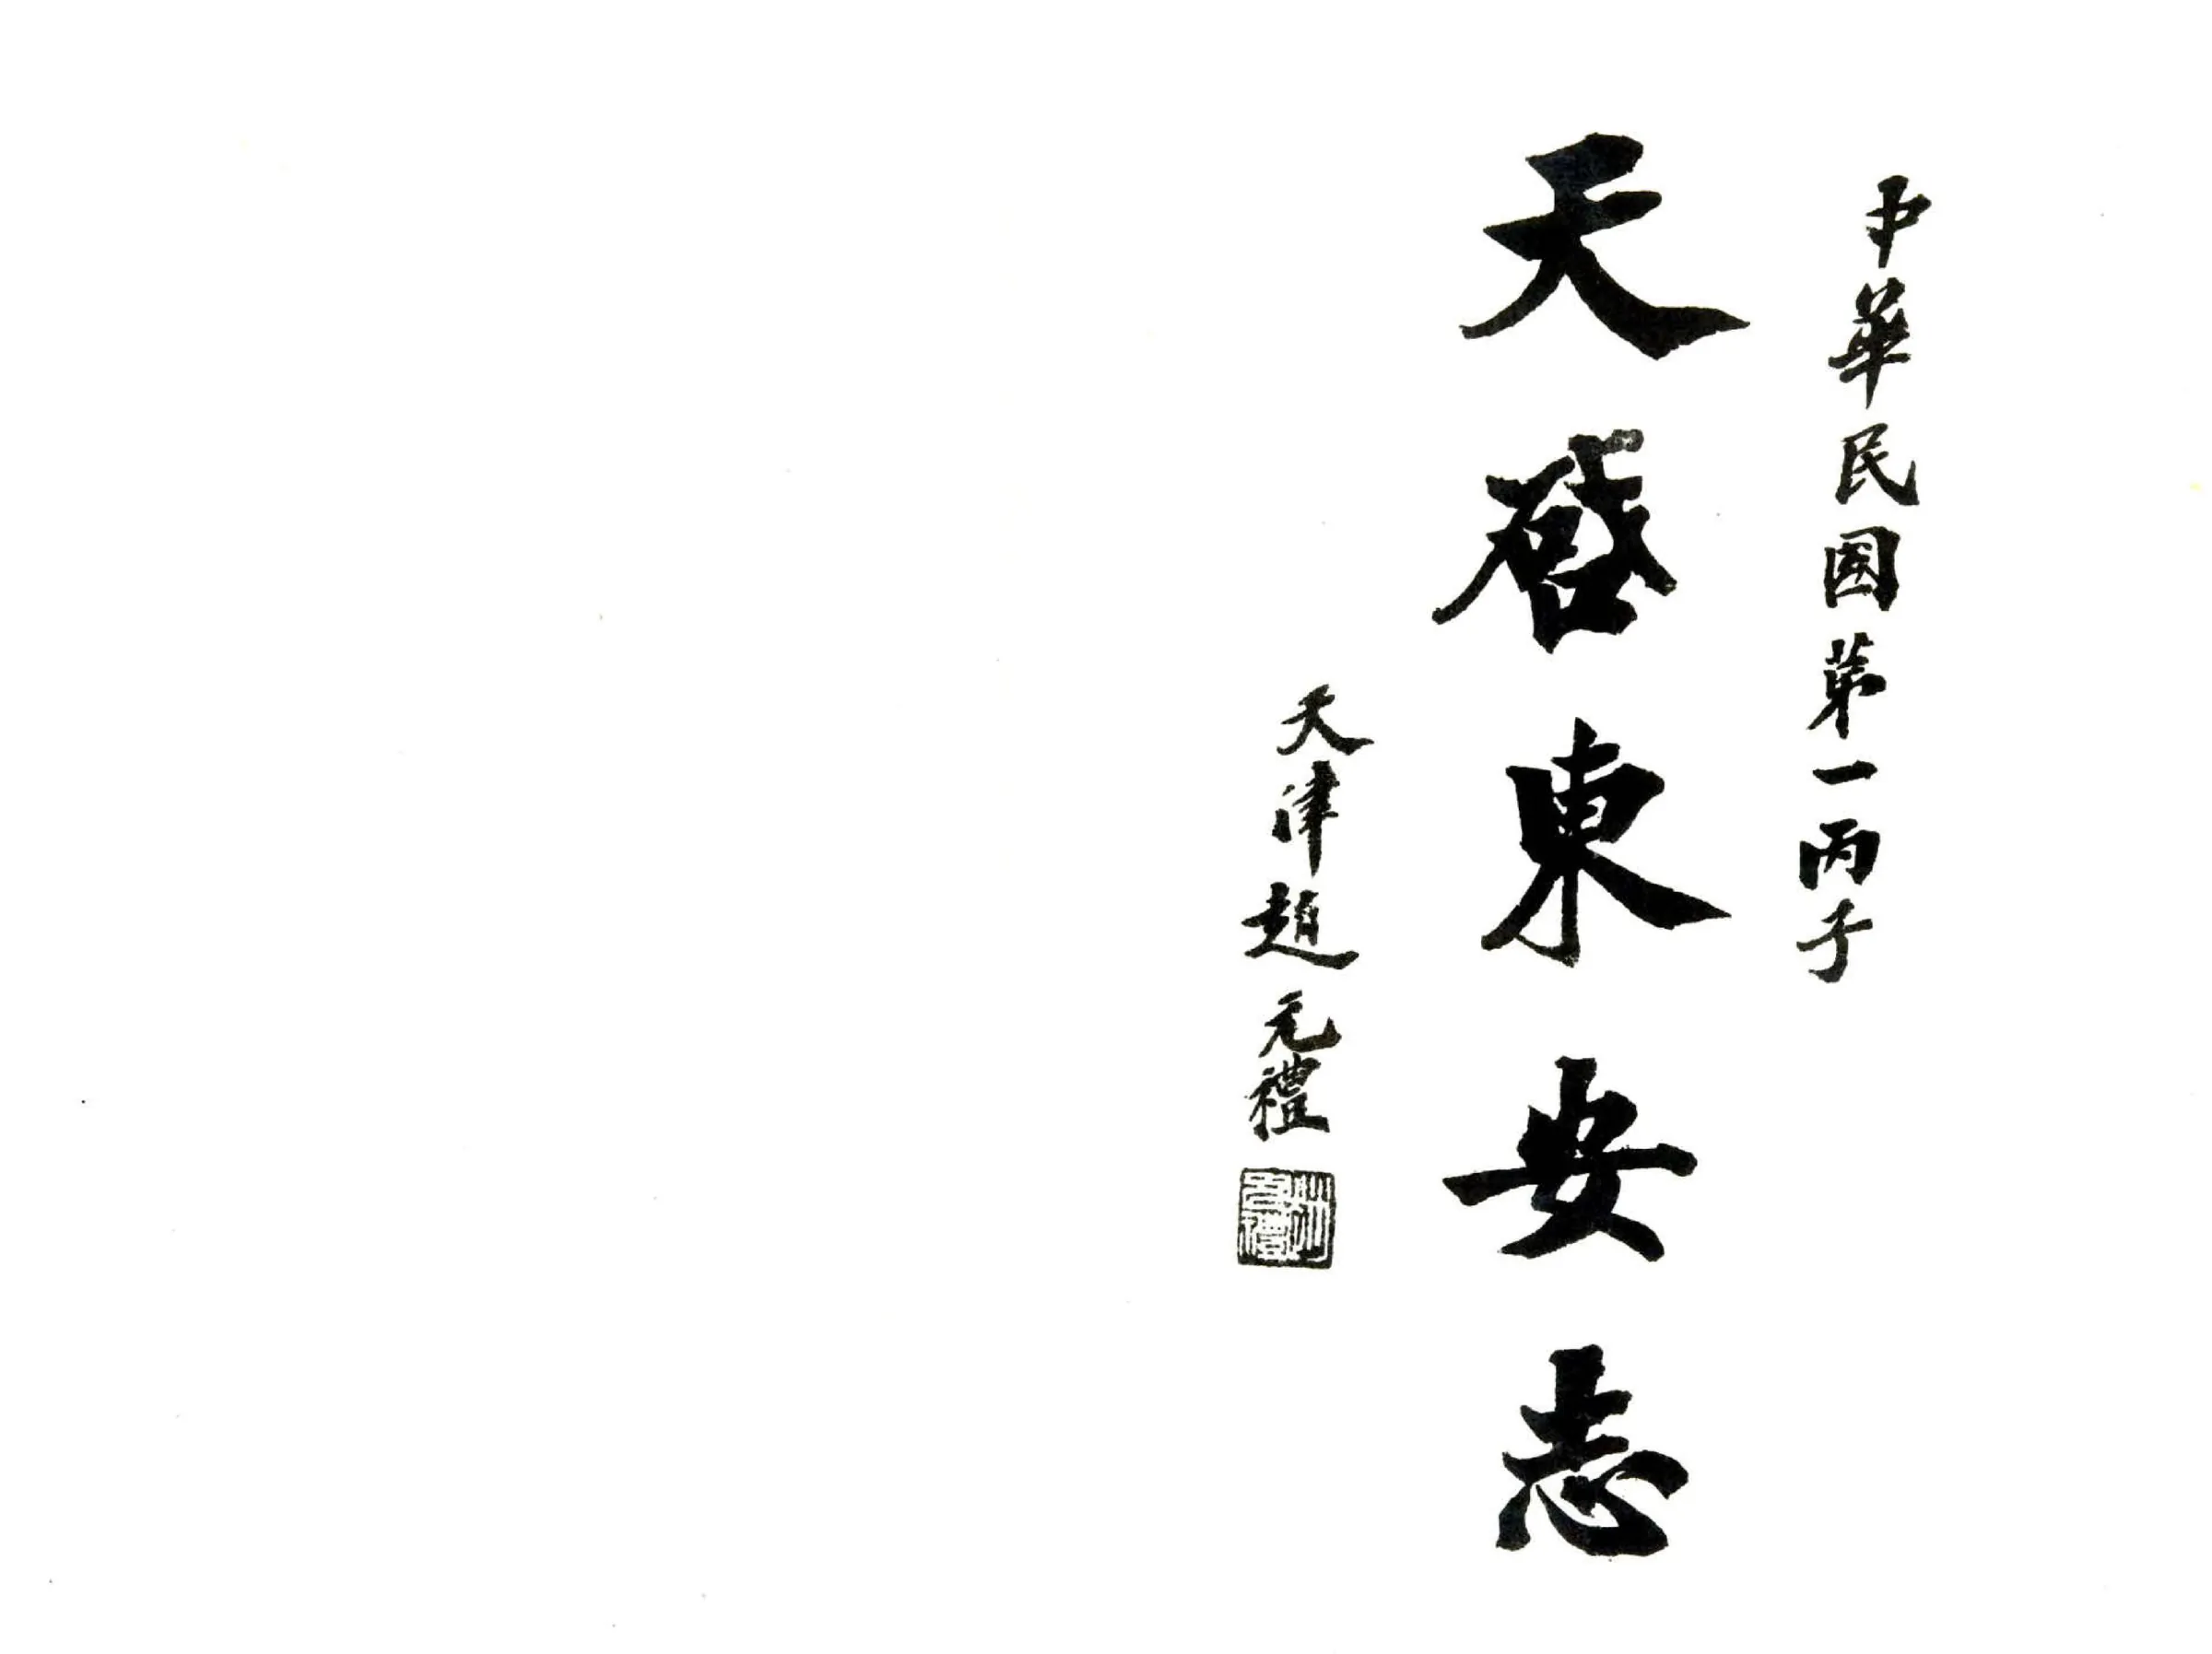 中華民国第一丙子
天啓東安志
天津趙元禮